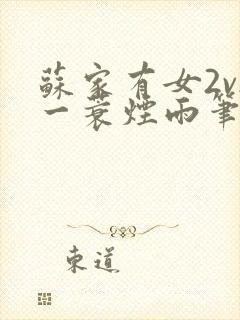 蘇家有女2v
一蓑煙雨筆
東道